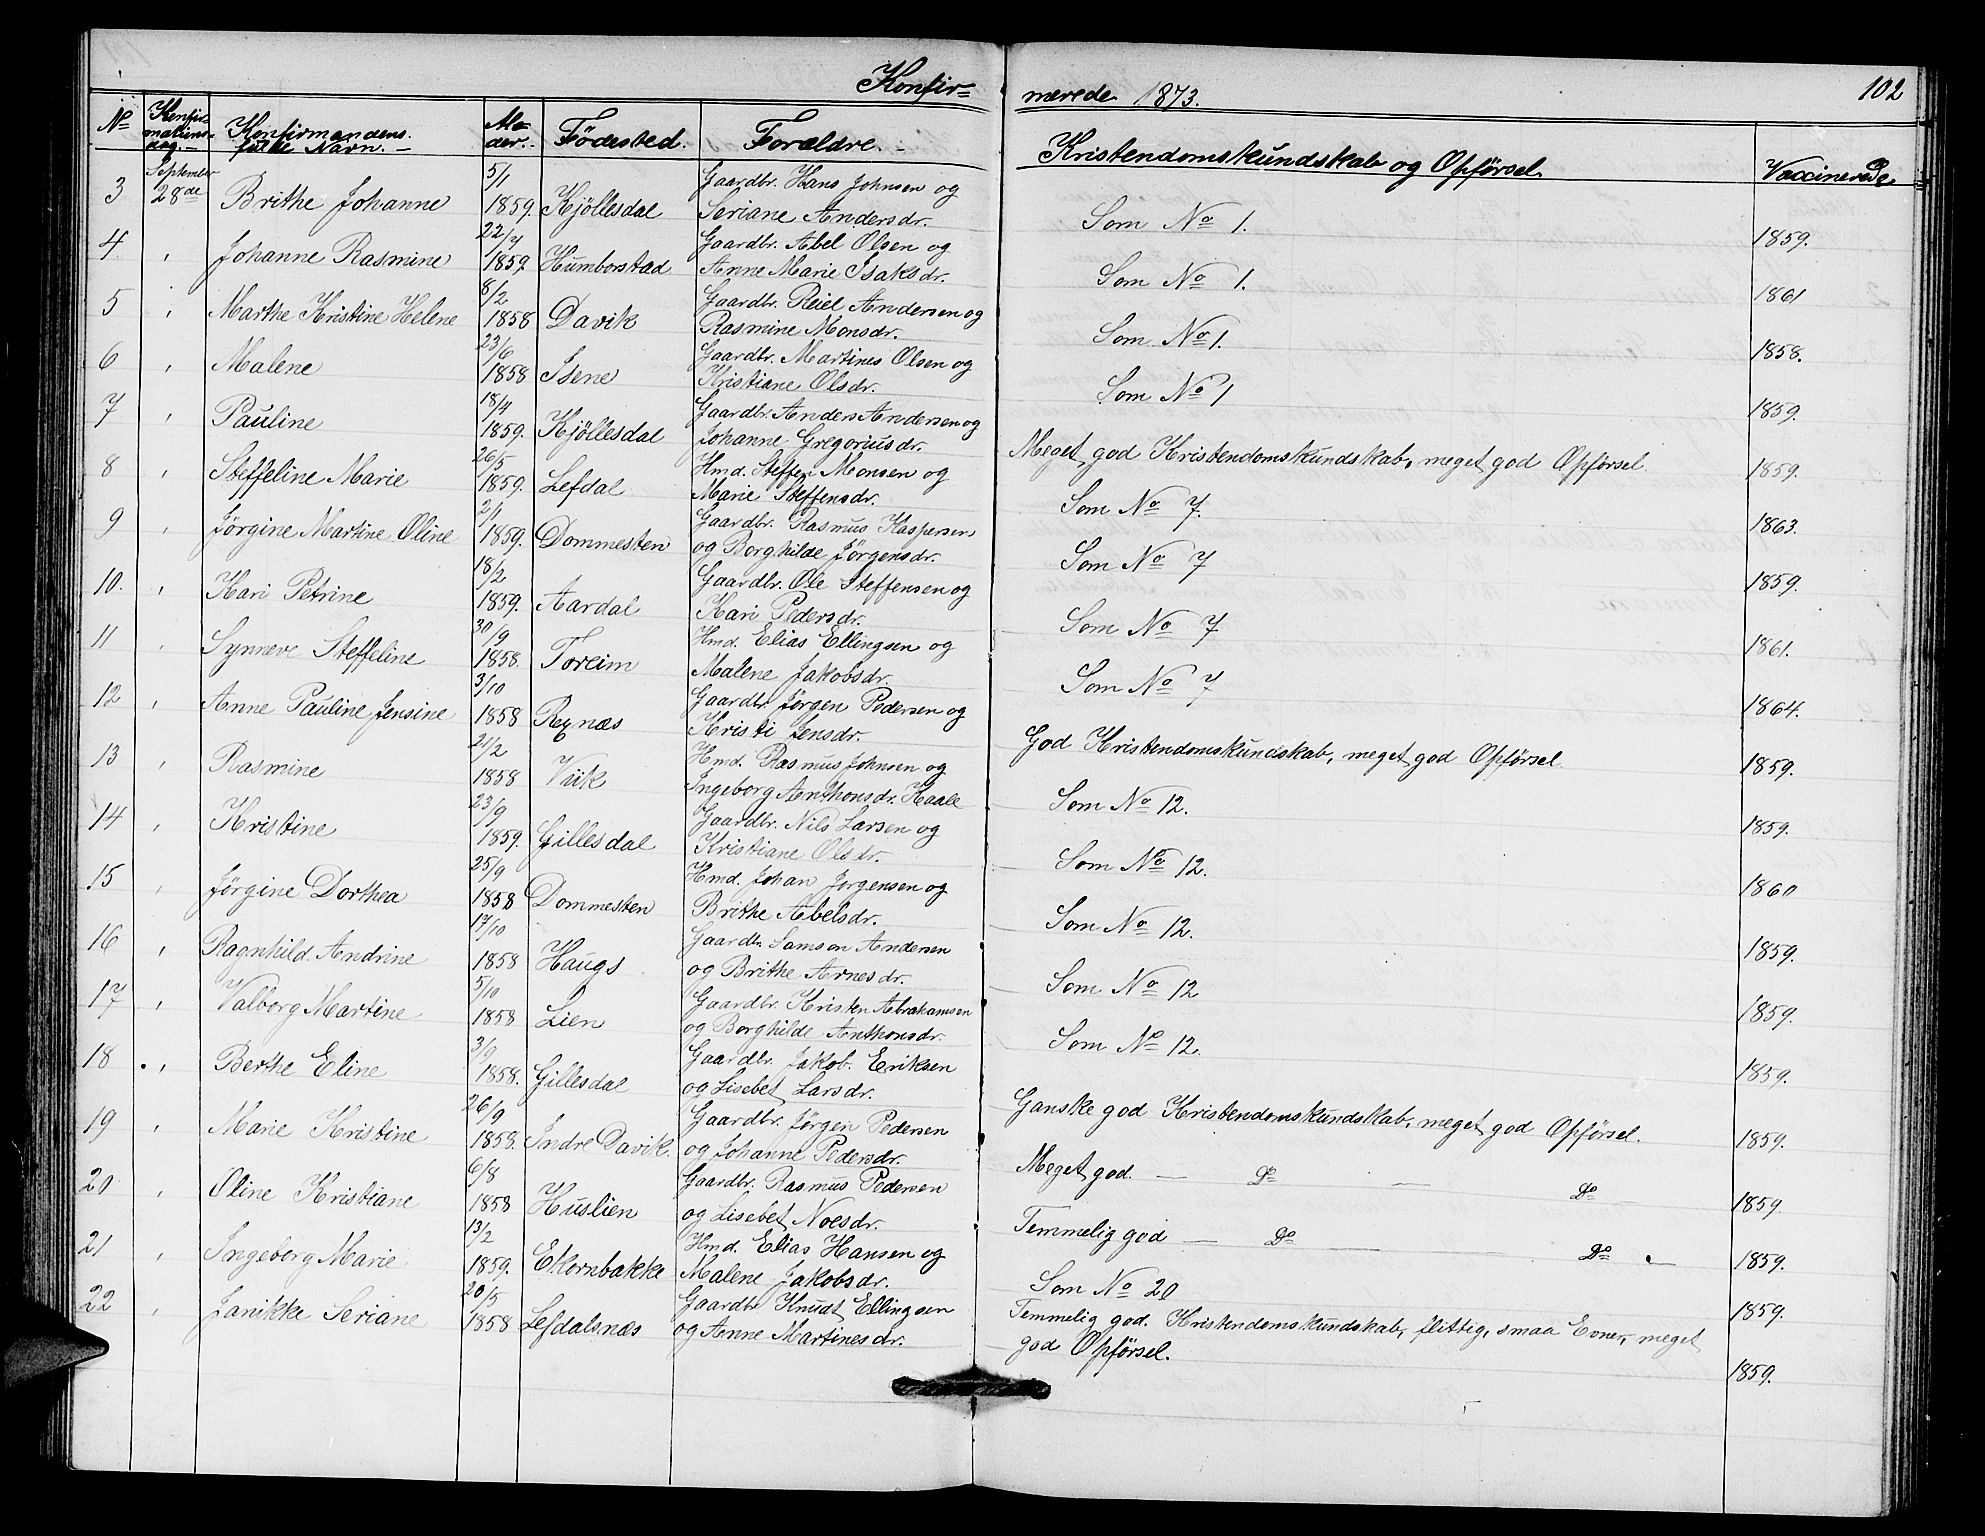 Konfir=
merede 1873.
102
No Konfirmationsdag. Konfirmandens fulde Navn. Alder. Fødested. Forældre. Kristendomskundskab og Opførsel. Vaccinerede
3 September 28de Brithe Johanne 5/1 1859. Kjöllesdal Gaardbr. Hans Johnsen og Seriane Andersdr. Som No 1. 1859.
4 " Johanne Rasmine 22/7 1859. Humborstad Gaardbr. Abel Olsen og Anne Marie Isaksdr. Som No 1. 1861
5 " Marthe Kristine Helene 8/2 1858 Davik Gaardbr. Reiel Andersen og Rasmine Monsdr. Som No 1. 1858.
6 " Malene 23/6 1858 Isene Gaardbr. Martines Olsen og Kristiane Olsdr. Som No 1 1859.
7 " Pauline 18/4 1859. Kjöllesdal Gaardbr. Anders Andersen og Johanne Gregoriusdr. Meget god Kristendomskundskab, meget god Opførsel. 1859.
8 " Steffeline Marie 26/5 1859. Lefdal Hmd. Steffen Monsen og Marie Steffensdr. Som No 7. 1863.
9 " Jørgine Martine Oline 2/1 1859. Dommesten Gaardbr. Rasmus Kaspersen og Borghilde Jørgensdr. Som No 7 1859.
10. " Kari Petrine 18/2 1859. Aardal Gaardbr. Ole Steffensen og Kari Pedersdr. Som No 7 1861.
11 " Synneve Steffeline 30/9 1858. Toreim Hmd. Elias Ellingsen og Malene Jakobsdr. Som No 7 1864.
12 " Anne Pauline Jensine 3/10 1858 Rexnæs Gaardbr Jørgen Pedersen og Kristi Jensdr. God Kristendomskundskab, meget god Opførsel 1859.
13 " Rasmine 21/2 1858 Viik Hmd. Rasmus Johnsen og Ingeborg Anthonsdr. Haale Som No 12. 1859.
14 " Kristine 23/9 1859. Gillesdal Gaardbr. Nils Larsen og Kristiane Olsdr. Som No 12. 1860
15 " Jørgine Dorthea 25/9 1858 Dommesten Hmd. Johan Jørgensen og Brithe Abelsdr. Som No 12. 1859.
16 " Ragnhild Andrine 17/10 1858 Haugs Gaardbr. Samson Andersen og Brithe Arnesdr. Som No 12 1859.
17 " Valborg Martine 5/10 1858 Lien Gaardbr. Kristen Abrahamsen og Borghilde Anthonsdr. Som No 12. 1859.
18 " Berthe Eline 3/9 1858. Gillesdal Gaardbr. Jakob Eriksen og Lisebet Larsdr. Ganske god Kristendomskundskab, meget god Opførsel. 1859.
19 " Marie Kristine 26/9 1858. Indre Davik. Gaardbr. Jørgen Pedersen og Johanne Pedersdr. Meget god. — Do — Do — 1859.
20 " Oline Kristiane 6/8 1858 Huslien Gaardbr. Rasmus Pedersen og Lisebet Noesdr. Temmelig god — Do — Do — 1859.
21 " Ingeborg Marie 13/2 1859. Ekornbakke Hmd. Elias Hansen og Malene Jakobsdr. Som No 20 1859.
22 " Janikke Seriane 20/5 1858 Lefdalsnæs Gaardbr Knudt Ellingsen og Anne Martinesdr. Temmelig god Kristendomskundskab, flittig, smaa Evner, meget god Opførsel. 1859.